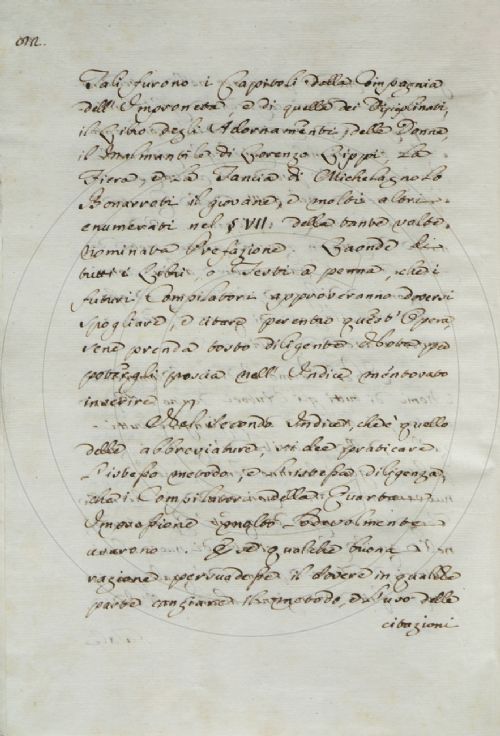 Tali furono i Capitoli della Compagnia
dell'Impruneta e di quella dei Disciplinati,
il Libro degli Adornamenti delle Donne,
il Malmantile di Lorenzo Lippi, La
Fiera, e La Tancia di Michelagnolo
Bonarroti il giovane, e molti altri
enumerati nel §. VII. della tante volte
nominata Prefazione. Laonde di
tutti i Libri, o Testi a penna, che i
futuri Compilatori approveranno doversi
spogliare, e citare per entro quest'Opera,
sene prenda tosto diligente Nota, per
potergli poscia nell'Indice mentovato
inserire.
Nel secondo Indice, ched'è quello
delle abbreviature, si dee praticare
l'istesso metodo, e l'istessa diligenza,
che i Compilatori della Quarta
Impressione molto Lodevolmente
usarono. E se qualche buona
ragione persuadesse il dovere in qualche
parte cangiare il metodo, e l'uso delle
citazioni